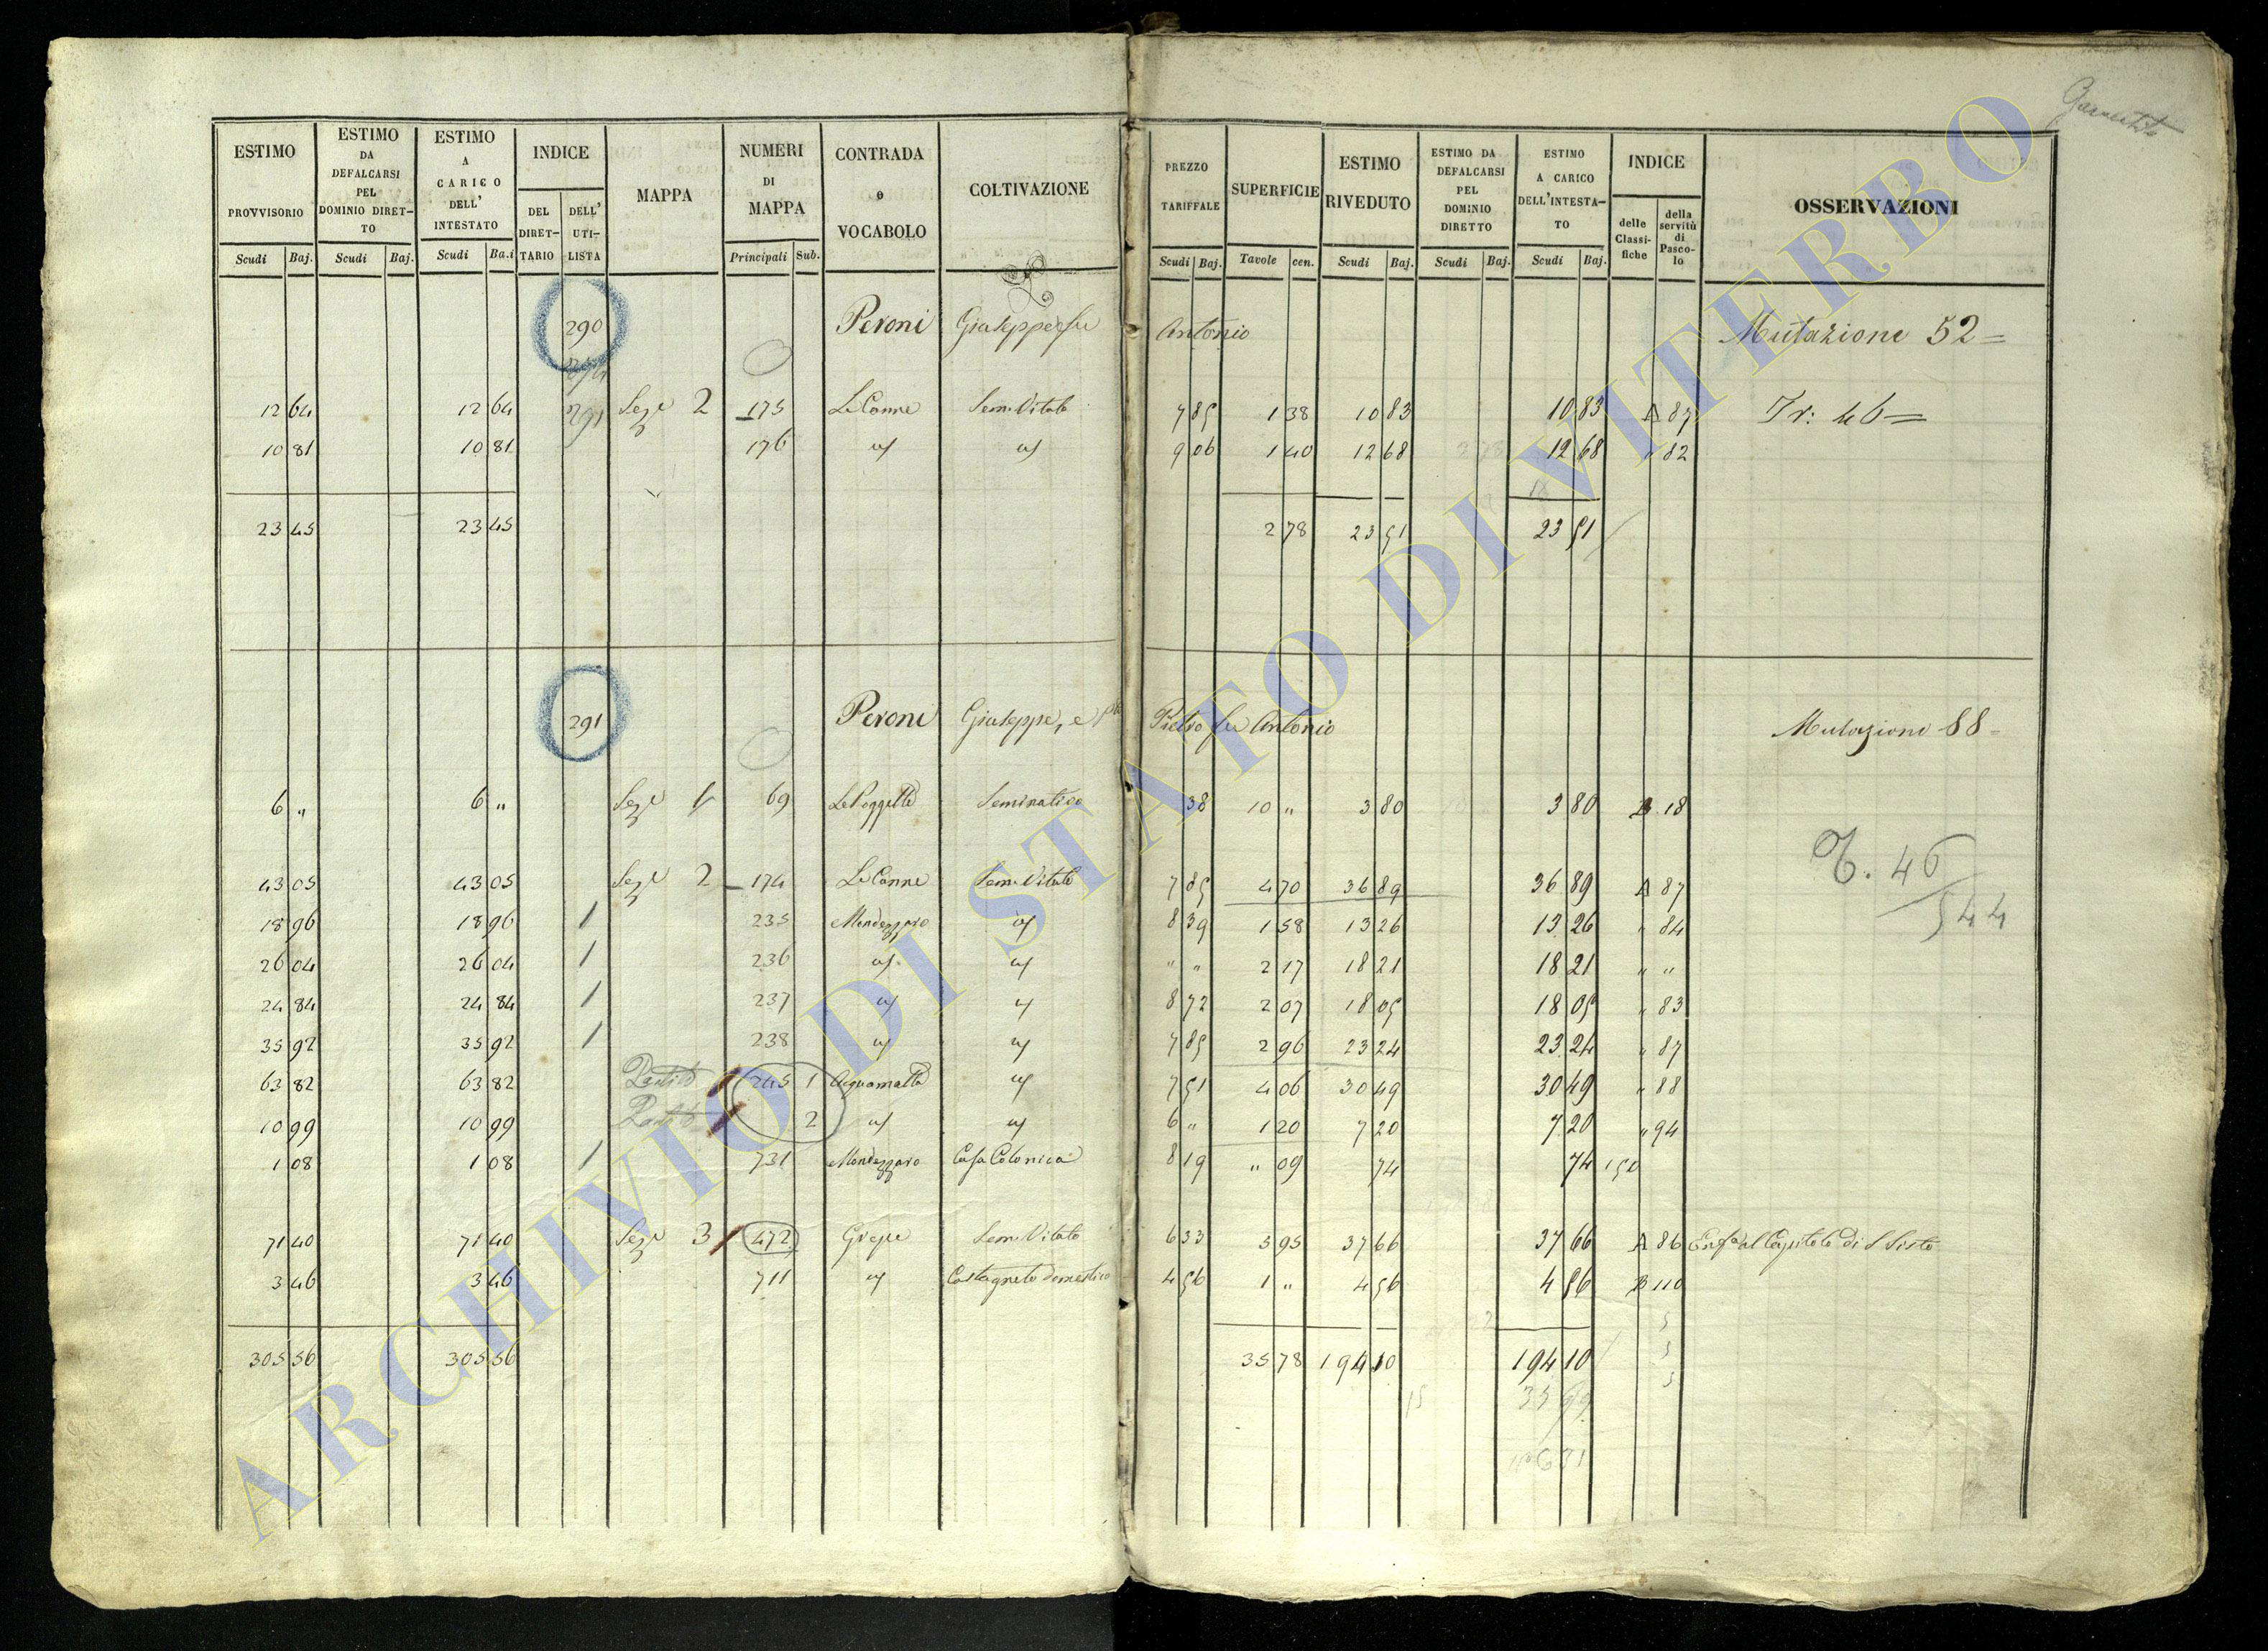 Garnestito
ESTIMO PROVVISORIO | ESTIMO DA DEFALCARSI PEL DOMINIO DIRET-TO | ESTIMO A CARICO DELL' INTESTATO | INDICE | MAPPA | NUMERI DI MAPPA | CONTRADA o VOCABOLO | COLTIVAZIONE | PREZZO TARIFFALE | SUPERFICIE | ESTIMO RIVEDUTO | ESTIMO DA DEFALCARSI PEL DOMINIO DIRETTO | ESTIMO A CARICO DELL'INTESTA-TO | INDICE | OSSERVAZIONI
DEL DIRET-TARIO | DELL' UTI-LISTA | delle Classi-fiche | della servitù di Pasco-lo
Scudi | Baj. | Scudi | Baj. | Scudi | Ba.i | Principali | Sub. | Scudi | Baj. | Tavole | cen. | Scudi | Baj. | Scudi | Baj. | Scudi | Baj.
290 Peroni Giuseppe fu Antonio Mutazione 52 =
12 64 | 12 64 | 291 | Sez.e 2 | 175 | Le Canne | Sem. Vitato | 7 85 | 1 38 | 10 83 | 10 83 | A 87 | Tr: 46 =
10 81 | 10 81 | 176 | id | id | 9 06 | 1 40 | 12 68 | 12 68 | " 82
23 45 | 23 45 | 2 78 | 23 51 | 23 51
291 Peroni Giuseppe, e Pietro fu Antonio Mutazione 88 =
6 " | 6 " | Sez.e 1 | 69 | Le Poggette | Seminativo | 38 | 10 " | 3 80 | 3 80 | B 18
T. 46
544
43 05 | 43 05 | Sez.e 2 | 174 | Le Canne | Sem. Vitato | 7 85 | 4 70 | 36 89 | 36 89 | A 87
18 96 | 18 96 | / | 235 | Mondezzaro | id | 8 39 | 1 58 | 13 26 | 13 26 | " 84
26 04 | 26 04 | / | 236 | id | id | " " | 2 17 | 18 21 | 18 21 | " "
24 84 | 24 84 | / | 237 | id | id | 8 72 | 2 07 | 18 05 | 18 05 | " 83
35 92 | 35 92 | / | 238 | id | id | 7 85 | 2 96 | 23 24 | 23 24 | " 87
63 82 | 63 82 | 245 1 | Acquamatta | id | 7 51 | 4 06 | 30 49 | 30 49 | " 88
10 99 | 10 99 | 2 | id | id | 6 " | 1 20 | 7 20 | 7 20 | " 94
1 08 | 1 08 | / | 731 | Mondezzaro | Casa Colonica | 8 19 | " 09 | 74 | 74 | 150
71 40 | 71 40 | Sez.e 3 | 472 | Grepe | Sem. Vitato | 6 33 | 5 95 | 37 66 | 37 66 | A 86 | Enf.a al Capitolo di S Sisto
3 46 | 3 46 | 711 | id | Castagneto domestico | 4 56 | 1 " | 4 56 | 4 56 | B 110
305 56 | 305 56 | 35 78 | 194 10 | 194 10
ARCHIVIO DI STATO DI VITERBO